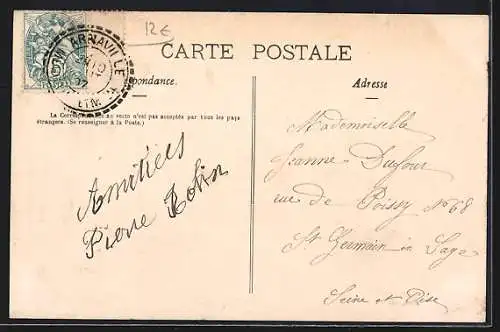 12€
ARNAVILLE
CARTE POSTALE
pondance.
Adresse
La Correspondance au recto n'est pas acceptée par tous les pays
étrangers. (Se renseigner à la Poste.)
Amitiés
Pierre Robin
Mademoiselle
Jeanne Dufour
rue de Poissy N° 68
St Germain en Laye
Seine et Oise